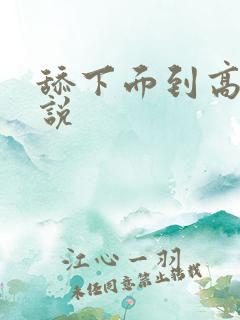 舔下面到高
說
江心一羽
未经同意禁止转载